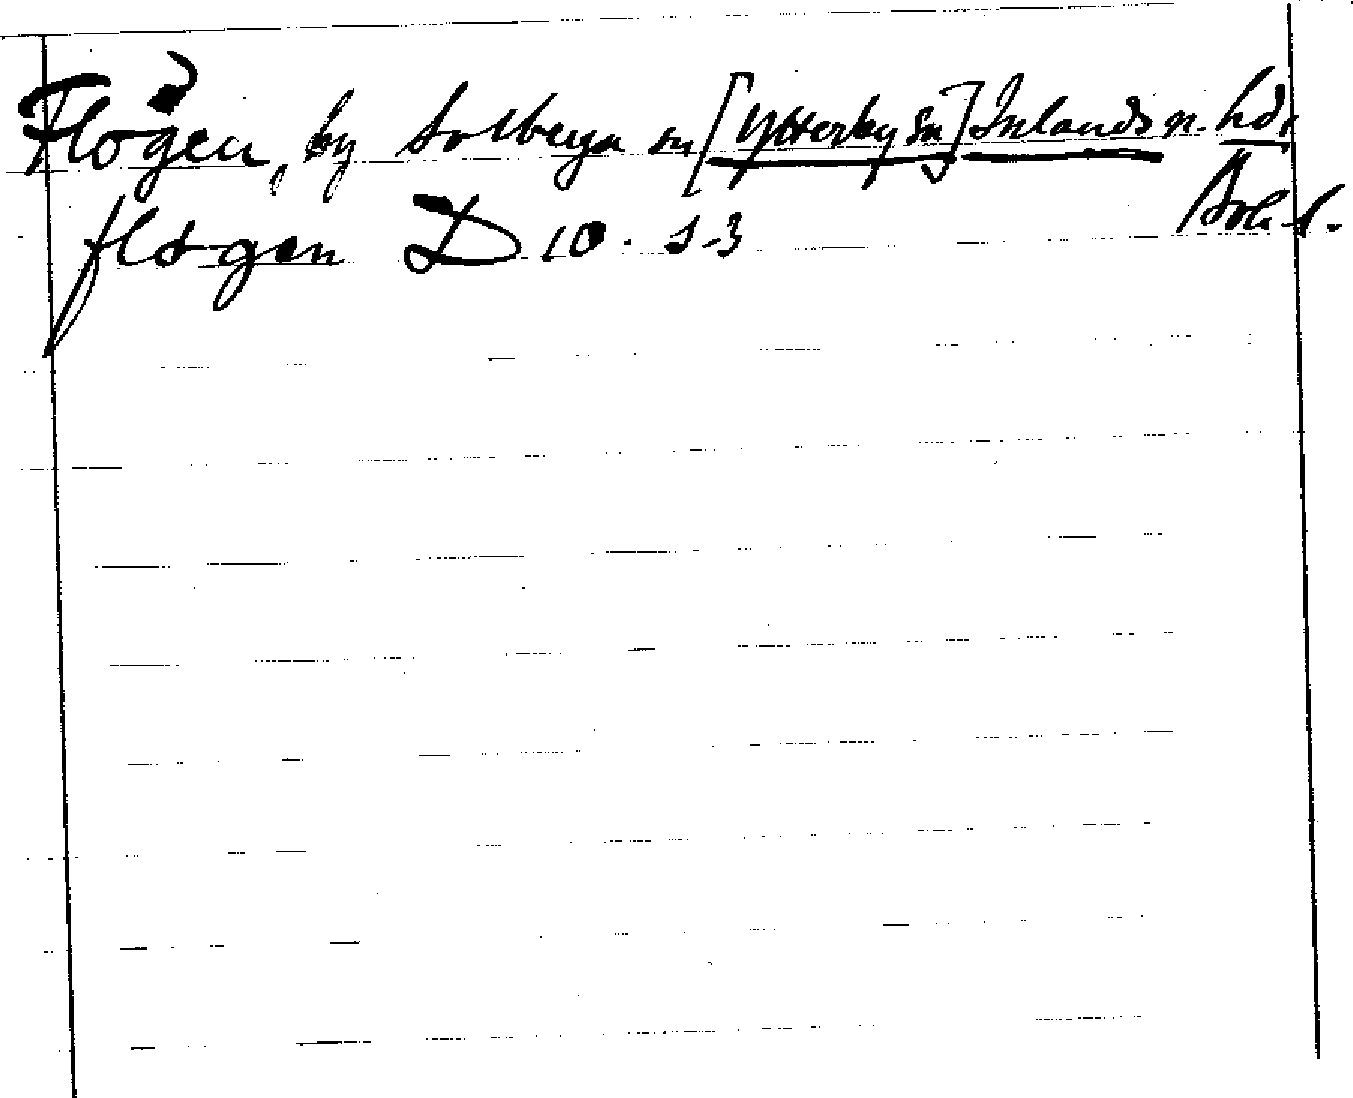 Flögen, by Solberga sn [Ytterby sn] Inlands n. hd,
Boh. l.
flögen D 10. S-3